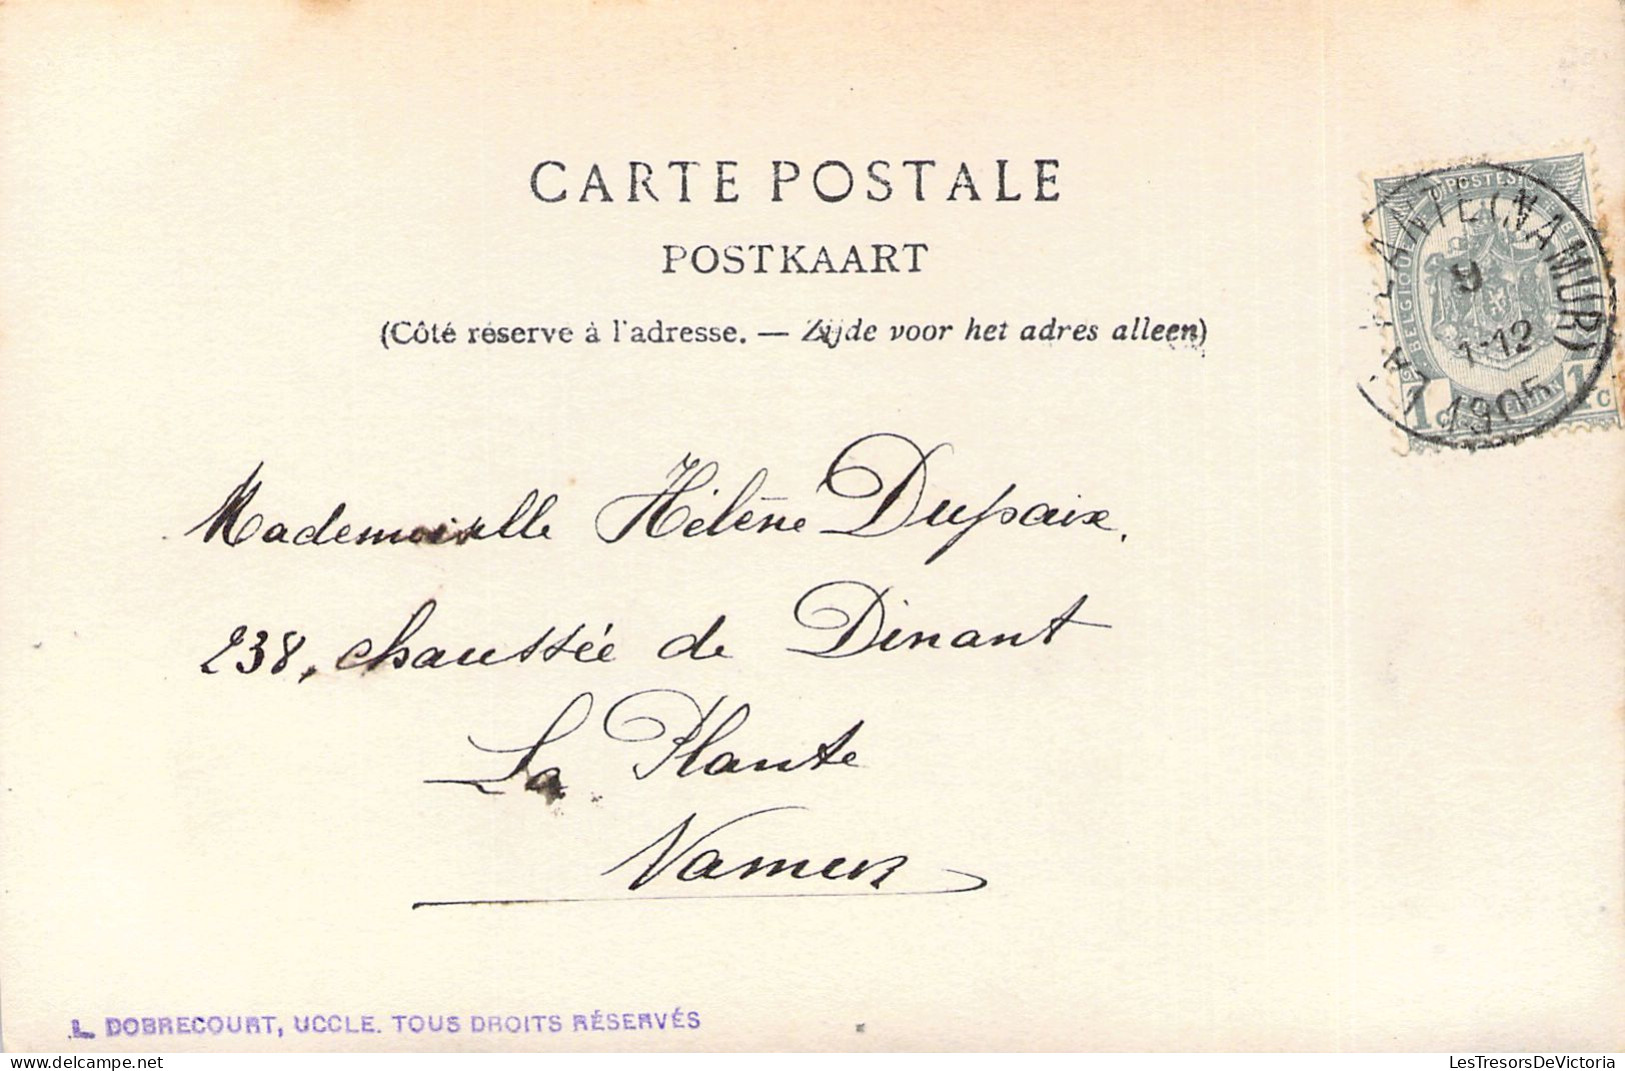 CARTE POSTALE
POSTKAART
(Côté réservé à l'adresse. — Zijde voor het adres alleen)
LA PLANTE (NAMUR)
9
1-12
1905
POSTES
BELGIQUE
1c 1c
Mademoiselle Hélène Dupaix.
238, chaussée de Dinant
La Plante
Namur
L. DOBRECOURT, UCCLE. TOUS DROITS RÉSERVÉS
LesTresorsDeVictoria